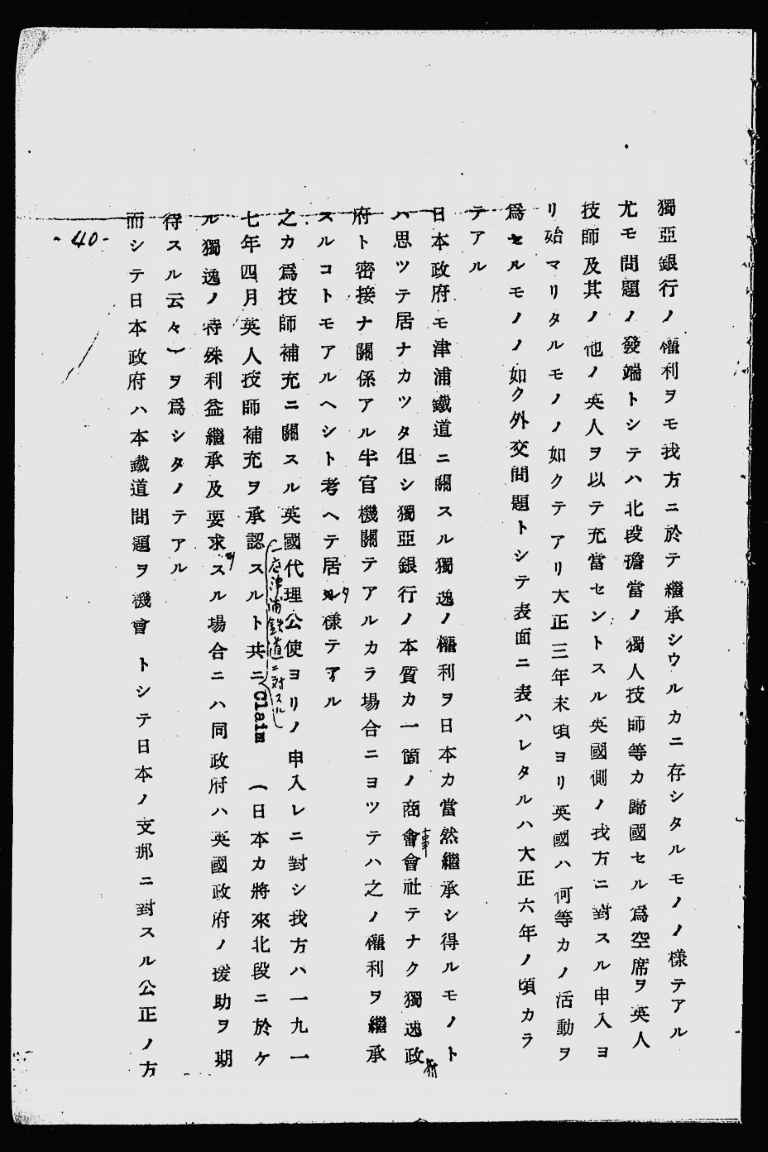 獨亞銀行ノ權利ヲモ我方ニ於テ繼承シウルカニ存シタルモノノ樣テアル
尤モ問題ノ發端トシテハ北段擔當ノ獨人技師等カ歸國セル爲空席ヲ英人
技師及其ノ他ノ英人ヲ以テ充當セントスル英國側ノ我方ニ對スル申入ヨ
リ始マリタルモノノ如クテアリ大正三年末頃ヨリ英國ハ何等カノ活動ヲ
爲セルモノノ如ク外交問題トシテ表面ニ表ハレタルハ大正六年ノ頃カラ
テアル
日本政府モ津浦鐵道ニ關スル獨逸ノ權利ヲ日本カ當然繼承シ得ルモノト
ハ思ツテ居ナカツタ但シ獨亞銀行ノ本質カ一箇ノ商會會社テナク獨逸政
府ト密接ナ關係アル半官機關テアルカラ場合ニヨツテハ之ノ權利ヲ繼承
スルコトモアルヘシト考ヘテ居タ樣テアル
之カ爲技師補充ニ關スル英國代理公使ヨリノ申入レニ對シ我方ハ一九一
七年四月英人技師補充ヲ承認スルト共ニ一應津浦鉄道ニ対スルClaim(日本カ將來北段ニ於ケ
ル獨逸ノ特殊利益繼承及要求スル場合ニハ同政府ハ英國政府ノ援助ヲ期
得スル云々)ヲ爲シタノテアル
而シテ日本政府ハ本鐵道問題ヲ機會トシテ日本ノ支那ニ對スル公正ノ方
-40-